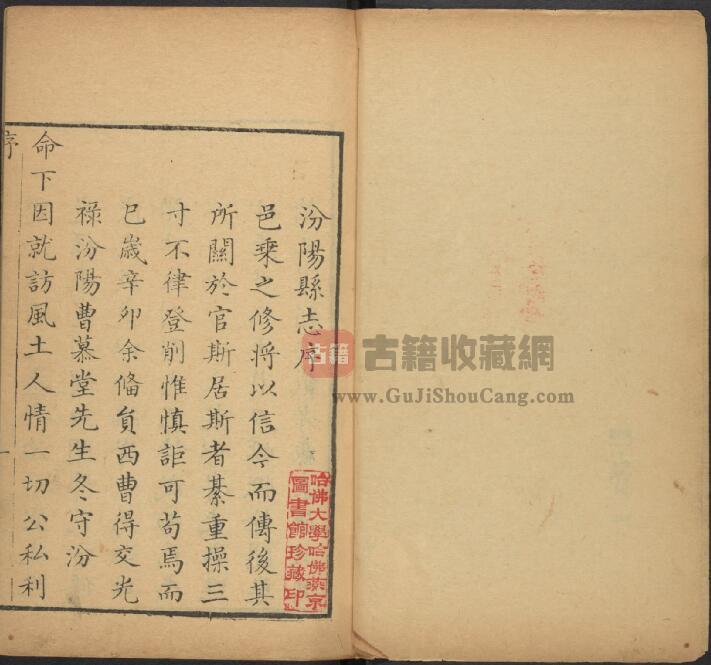 汾陽縣志序
邑乗之修將以信今而傳後其
所關於官斯居斯者綦重操三
寸不律登削惟慎詎可苟焉而
已嵗辛卯余偹員西曹得交光
祿汾陽曹慕堂先生冬守汾
命下因就訪風土人情一切公私利
序
一
哈佛大學哈佛燕京
圖書館珍藏印
古籍
古籍收藏網
www.GuJiShouCang.com